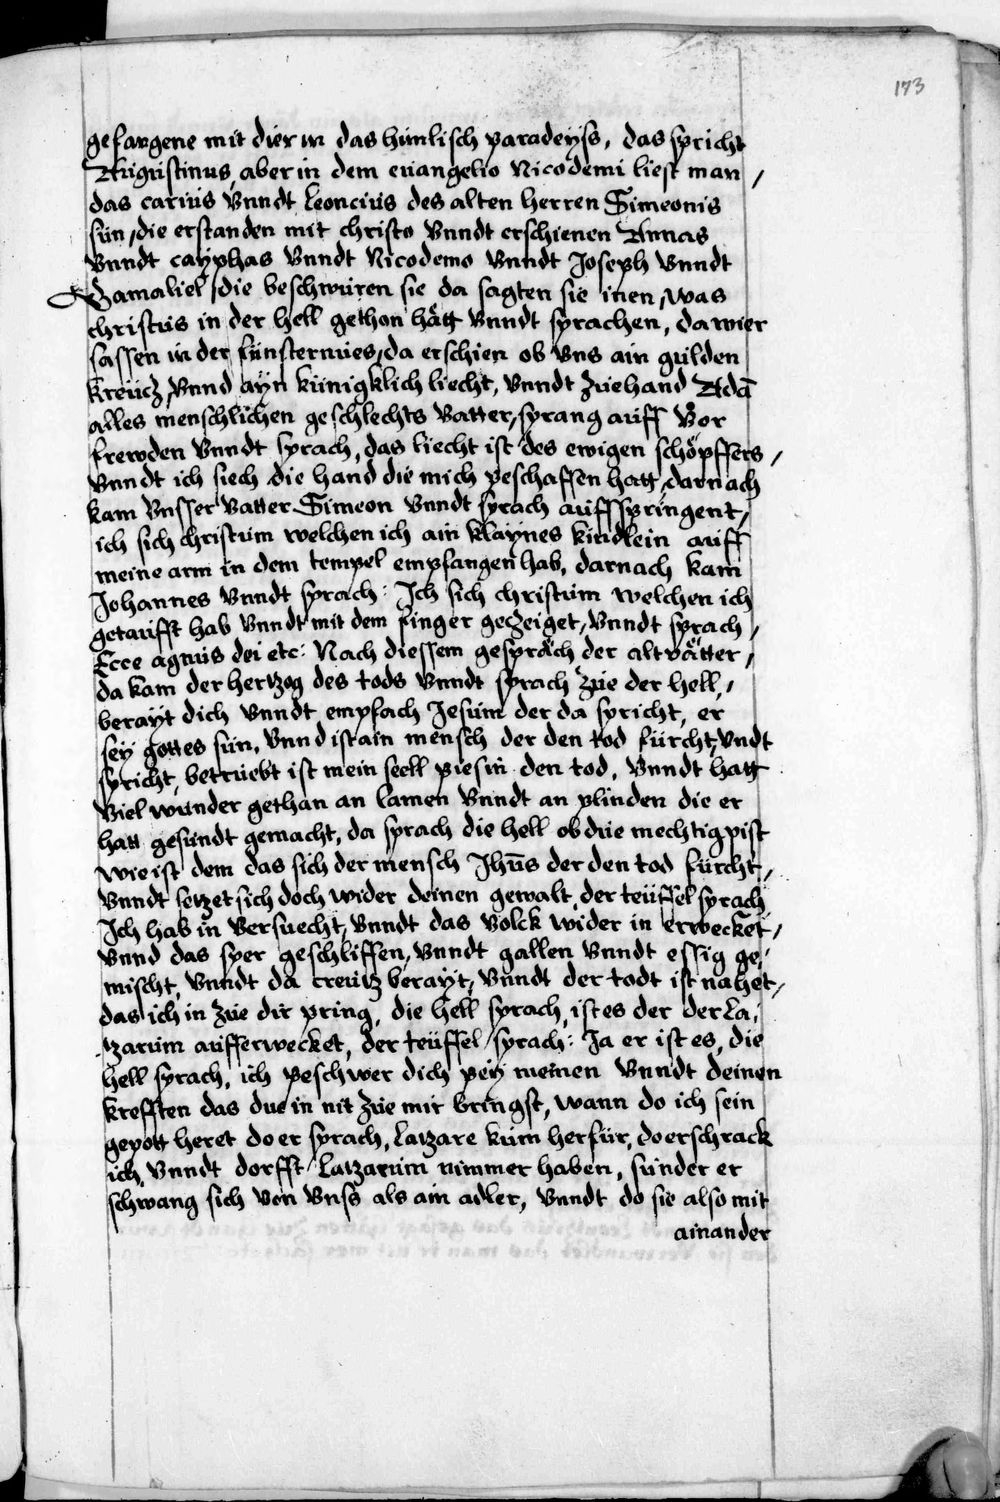 173
gefangene mit dier in das himlisch paradeyss, das spricht
Augustinus, aber in dem euangelio Nicodemi liest man,
das carius Vnndt Leoncius des alten herren Simeonis
sün, die erstanden mit christo Vnndt erschienen Annas
Vnndt cayphas Vnndt Nicodemo Vnndt Joseph Vnndt
Gamaliel, die beschwuren sie da sagten sie inen, was
christus in der hell gethon hätt Vnndt sprachen, da wier
sassen in der finsternues, da erschien ob Vns ain gulden
kreücz, Vnnd ayn künigklich liecht, Vnndt züehand Adā
alles menschlichen geschlechts Vatter, sprang auff Vor
frewden Vnndt sprach, das liecht ist des ewigen schöpffers,
Vnndt ich siech die hand die mich peschaffen hatt, darnach
kam Vnsser Vatter Simeon Vnndt sprach auffspringent,
ich sich christum welchen ich ain klaynes kindlein auff
meine arm in dem tempel empfangen hab, darnach kam
Johannes Vnndt sprach: Ich sich christum welchen ich
getaufft hab Vnndt mit dem finger geczeiget, Vnndt sprach,
Ecce agnus dei etc: Nach diessem gespräch der altvätter,
da kam der hertzog des tods Vnndt sprach züe der hell,
berayt dich Vnndt empfach Jesum der da spricht, er
sey gottes sun, Vnnd ist ain mensch der den tod fürcht, Vndt
spricht, betruebt ist mein seell pies in den tod, Vnndt hatt
Viel wunder gethan an lamen Vnndt an plinden die er
hatt gesundt gemacht, da sprach die hell ob due mechtig pist
wie ist dem das sich der mensch Jhūs der den tod fürcht,
Vnndt setzet sich doch wider deinen gewalt, der teüffel sprach
Ich hab in Versuecht, Vnndt das Volck wider in erwecket,
Vnnd das sper geschliffen, Vnndt gallen Vnndt essig ge,
mischt, Vnndt da creutz berayt, Vnndt der todt ist nahet,
das ich in züe dir pring, die hell sprach, ist es der der La,
tzarum aufferwecket, der teüffel sprach: Ja er ist es, die
hell sprach, ich peschwer dich pey meinen Vnndt deinen
krefften das due in nit züe mir bringst, wann do ich sein
gepott heret do er sprach, Latzare kum herfür, do erschrack
ich, Vnndt dorfft Latzarum nimmer haben, sunder er
schwang sich von Vnss als ain adler, Vnndt do sie also mit
ainander